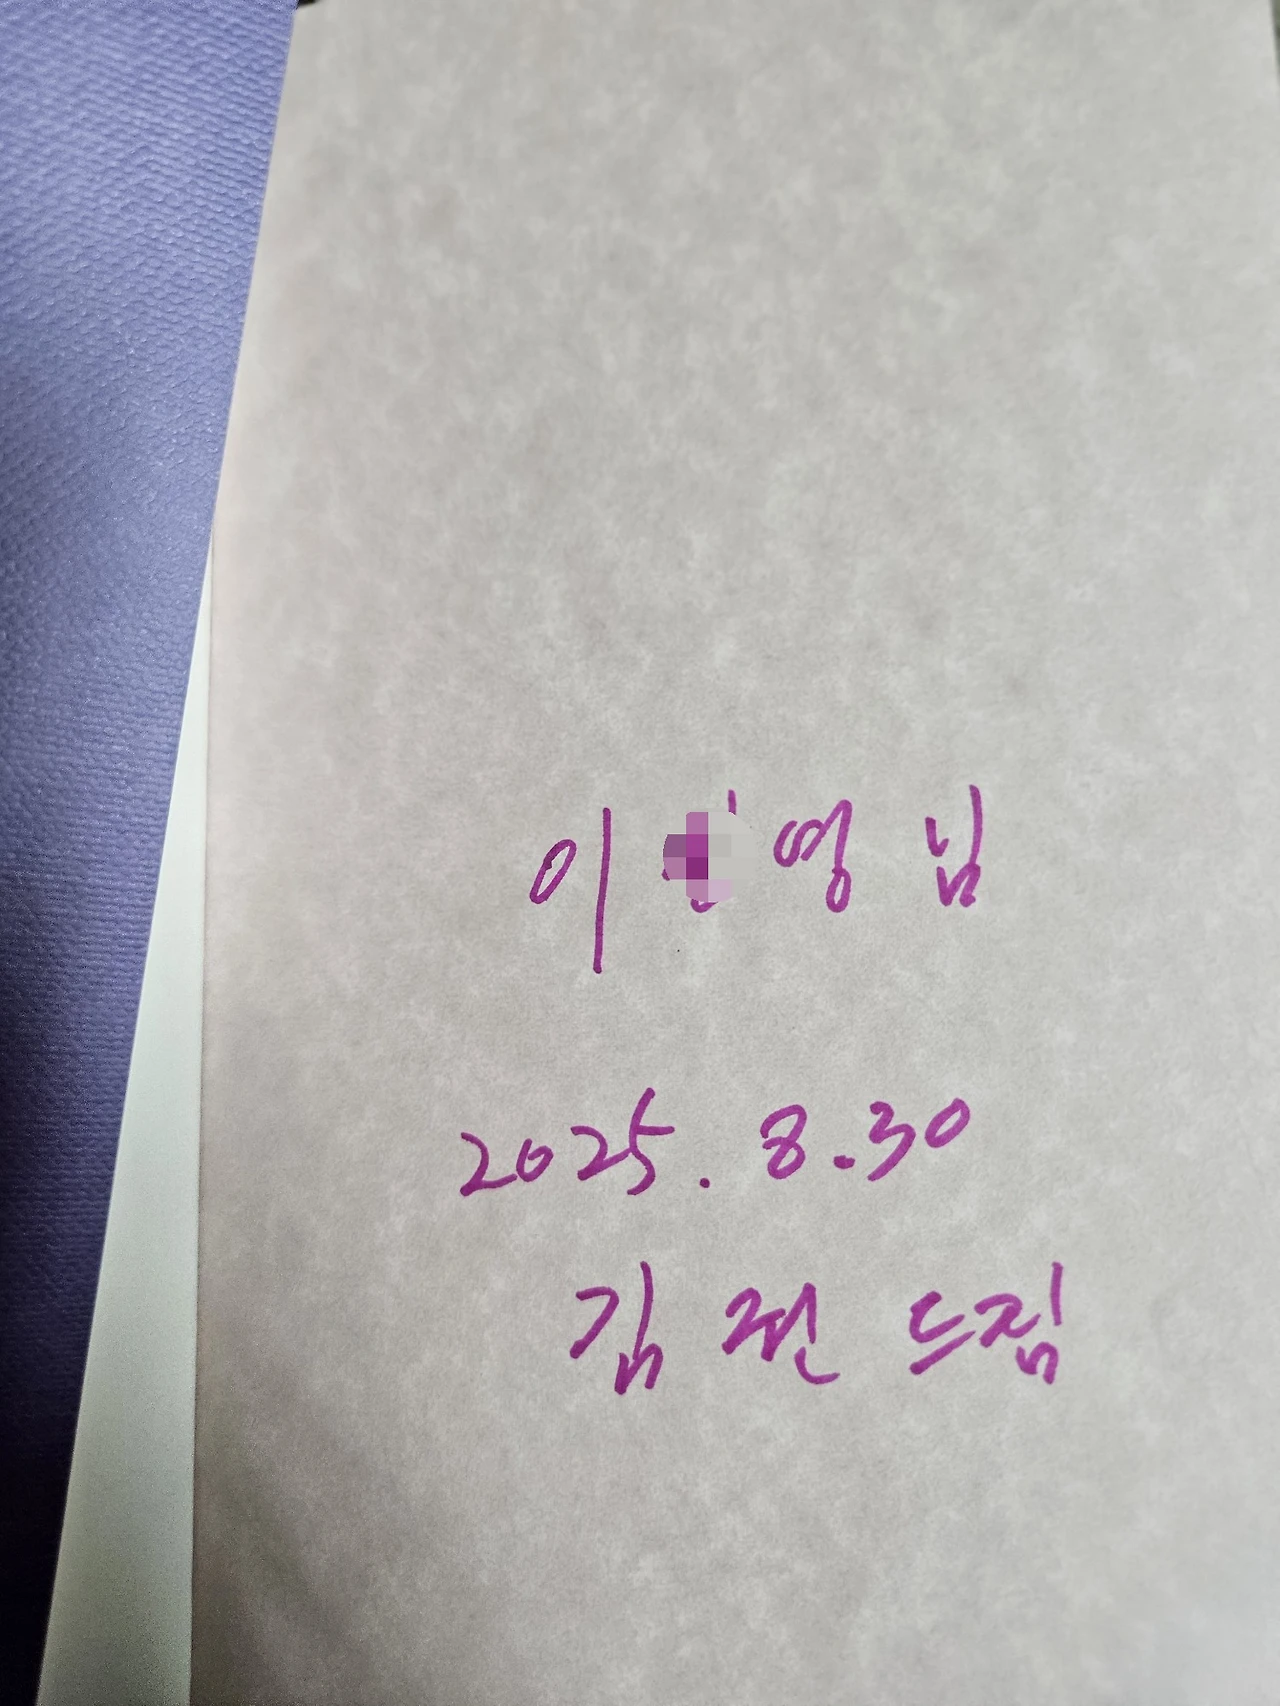 이 영 님
2025. 8.30
김 드림